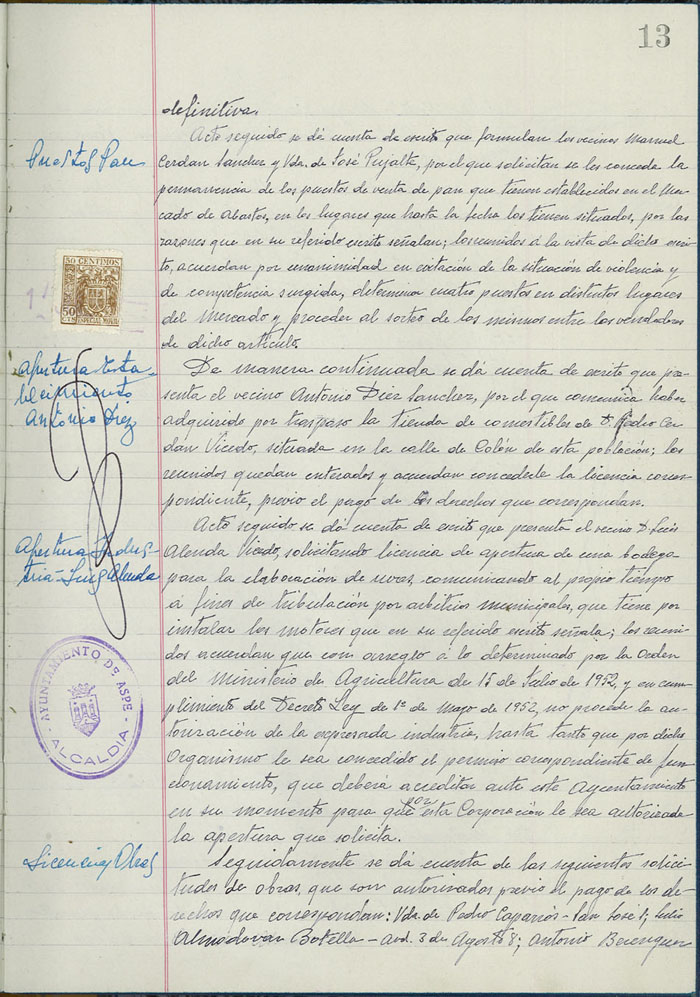 13
definitiva.
Acto seguido se dá cuenta de escrito que formulan los vecinos Manuel
Puestos Pan
Cerdan Sanchez y Vda. de José Pujalte, por el que solicitan se les conceda la
permanencia de los puestos de venta de pan que tienen establecidos en el Mer-
cado de Abastos, en los lugares que hasta la fecha los tienen situados, por las
razones que en su referido escrito señalan; los reunidos á la vista de dicho escri-
to, acuerdan por unanimidad en evitación de la situación de violencia y
de competencia surgida, determinar cuatro puestos en distintos lugares
del Mercado y proceder al sorteo de los mismos entre los vendedores
de dicho artículo.
50 CENTIMOS
50 CTS
ESPECIAL MOVIL
De manera continuada se dá cuenta de escrito que pre-
Apertura Esta-
blecimiento
Antonio Diez
senta el vecino Antonio Diez Sanchez, por el que comunica haber
adquirido por traspaso la tienda de comestibles de D. Pedro Cer-
dan Vicedo, situada en la calle de Colón de esta población; los
reunidos quedan enterados y acuerdan concederle la licencia corres-
pondiente, previo el pago de los derechos que correspondan.
Acto seguido se dá cuenta de escrito que presenta el vecino D. Luis
Apertura Indus-
tria-Luis Alenda
Alenda Vicedo, solicitando licencia de apertura de una bodega
para la elaboración de uvas, comunicando al propio tiempo
á fines de tributación por arbitrios municipales, que tiene por
instalar los motores que en su referido escrito señala; los reuni-
dos acuerdan que con arreglo á lo determinado por la Orden
del Ministerio de Agricultura de 15 de Julio de 1952, y en cum-
plimiento del Decreto Ley de 1º de Mayo de 1952, no procede la au-
torización de la expresada industria, hasta tanto que por dicho
Organismo le sea concedido el permiso correspondiente de fun-
cionamiento, que deberá acreditar ante este Ayuntamiento
en su momento para que por esta Corporación le sea autorizada
la apertura que solicita.
AYUNTAMIENTO DE ASPE
- ALCALDIA -
Licencias Obras
Seguidamente se dá cuenta de las siguientes solici-
tudes de obras, que son autorizadas previo el pago de los de-
rechos que correspondan: Vda. de Pedro Caparrós - San José 1; Julio
Almodovar Botella - avd. 3 de Agosto 8; Antonio Berenguer